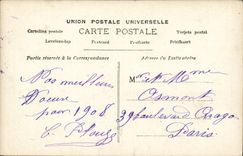 UNION POSTALE UNIVERSELLE
CARTE POSTALE
Cartolina postale
Tarjeta postal
Levelezö-lap
Postcard
Postkarte
Briefkaart
Partie réservée à la Correspondance
Adresse du Destinataire
Nos meilleurs
Voeux
pour 1908
M et Mme
Osmont
39 boulevard Arago
Paris